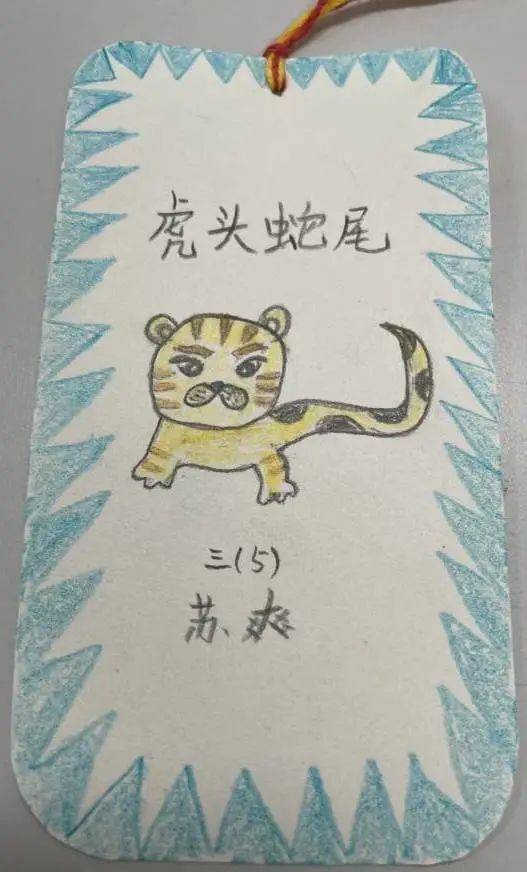 虎头蛇尾
三(5)
苏爽